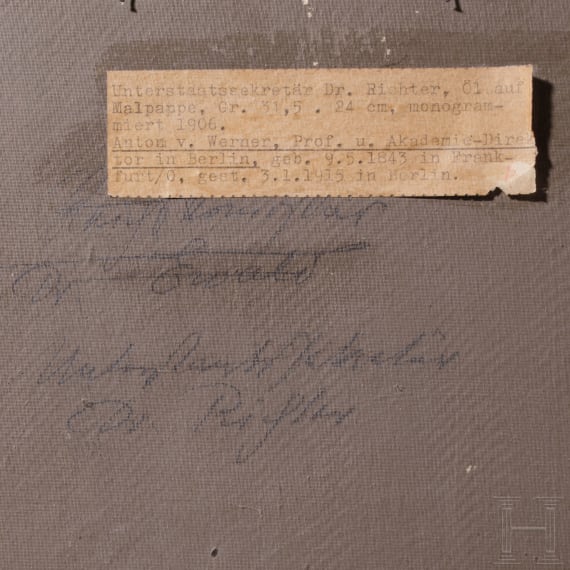 Unterstaatssekretär Dr. Richter, Öl auf
Malpappe, Gr. 31,5 . 24 cm, monogram-
miert 1906.
Anton v. Werner, Prof. u. Akademie-Direk
tor in Berlin, geb. 9.5.1843 in Frank-
furt/O, gest. 3.1.1915 in Berlin.
Dr Ewald
Unterstaats Sekretär
Dr. Richter
H